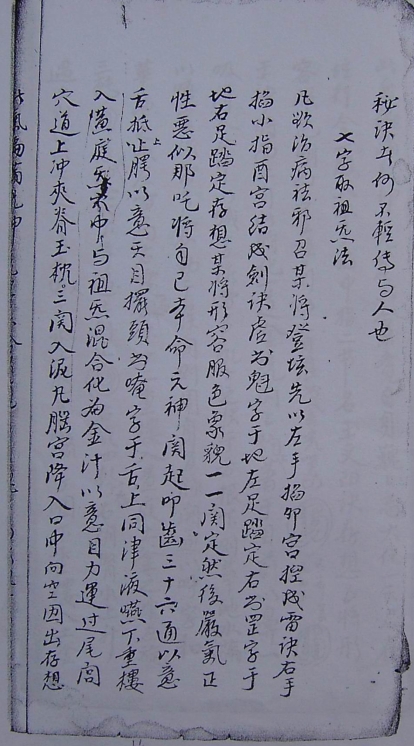 秘诀奈何不輕傳与人也
乂字取祖炁法
凡欲治病祛邪召某将登坛先以左手掐卯宫捏成雷诀右手
掐小指酉宫结成剑诀虚书魁字于地左足踏定右书罡字于
地右足踏定存想某将形容服色象貌一一闗定然後嚴氣正
性恶似那吒将自己本命元神闗起叩齒三十六通以意
舌抵上腭以意天目擺頭书唵字于舌上同津液嚥下重樓
入黄庭炁穴中与祖炁混合化为金汁以意目力運过尾闾
穴道上冲夾脊玉枕三闗入泥丸腦宫降入口中向空因出存想